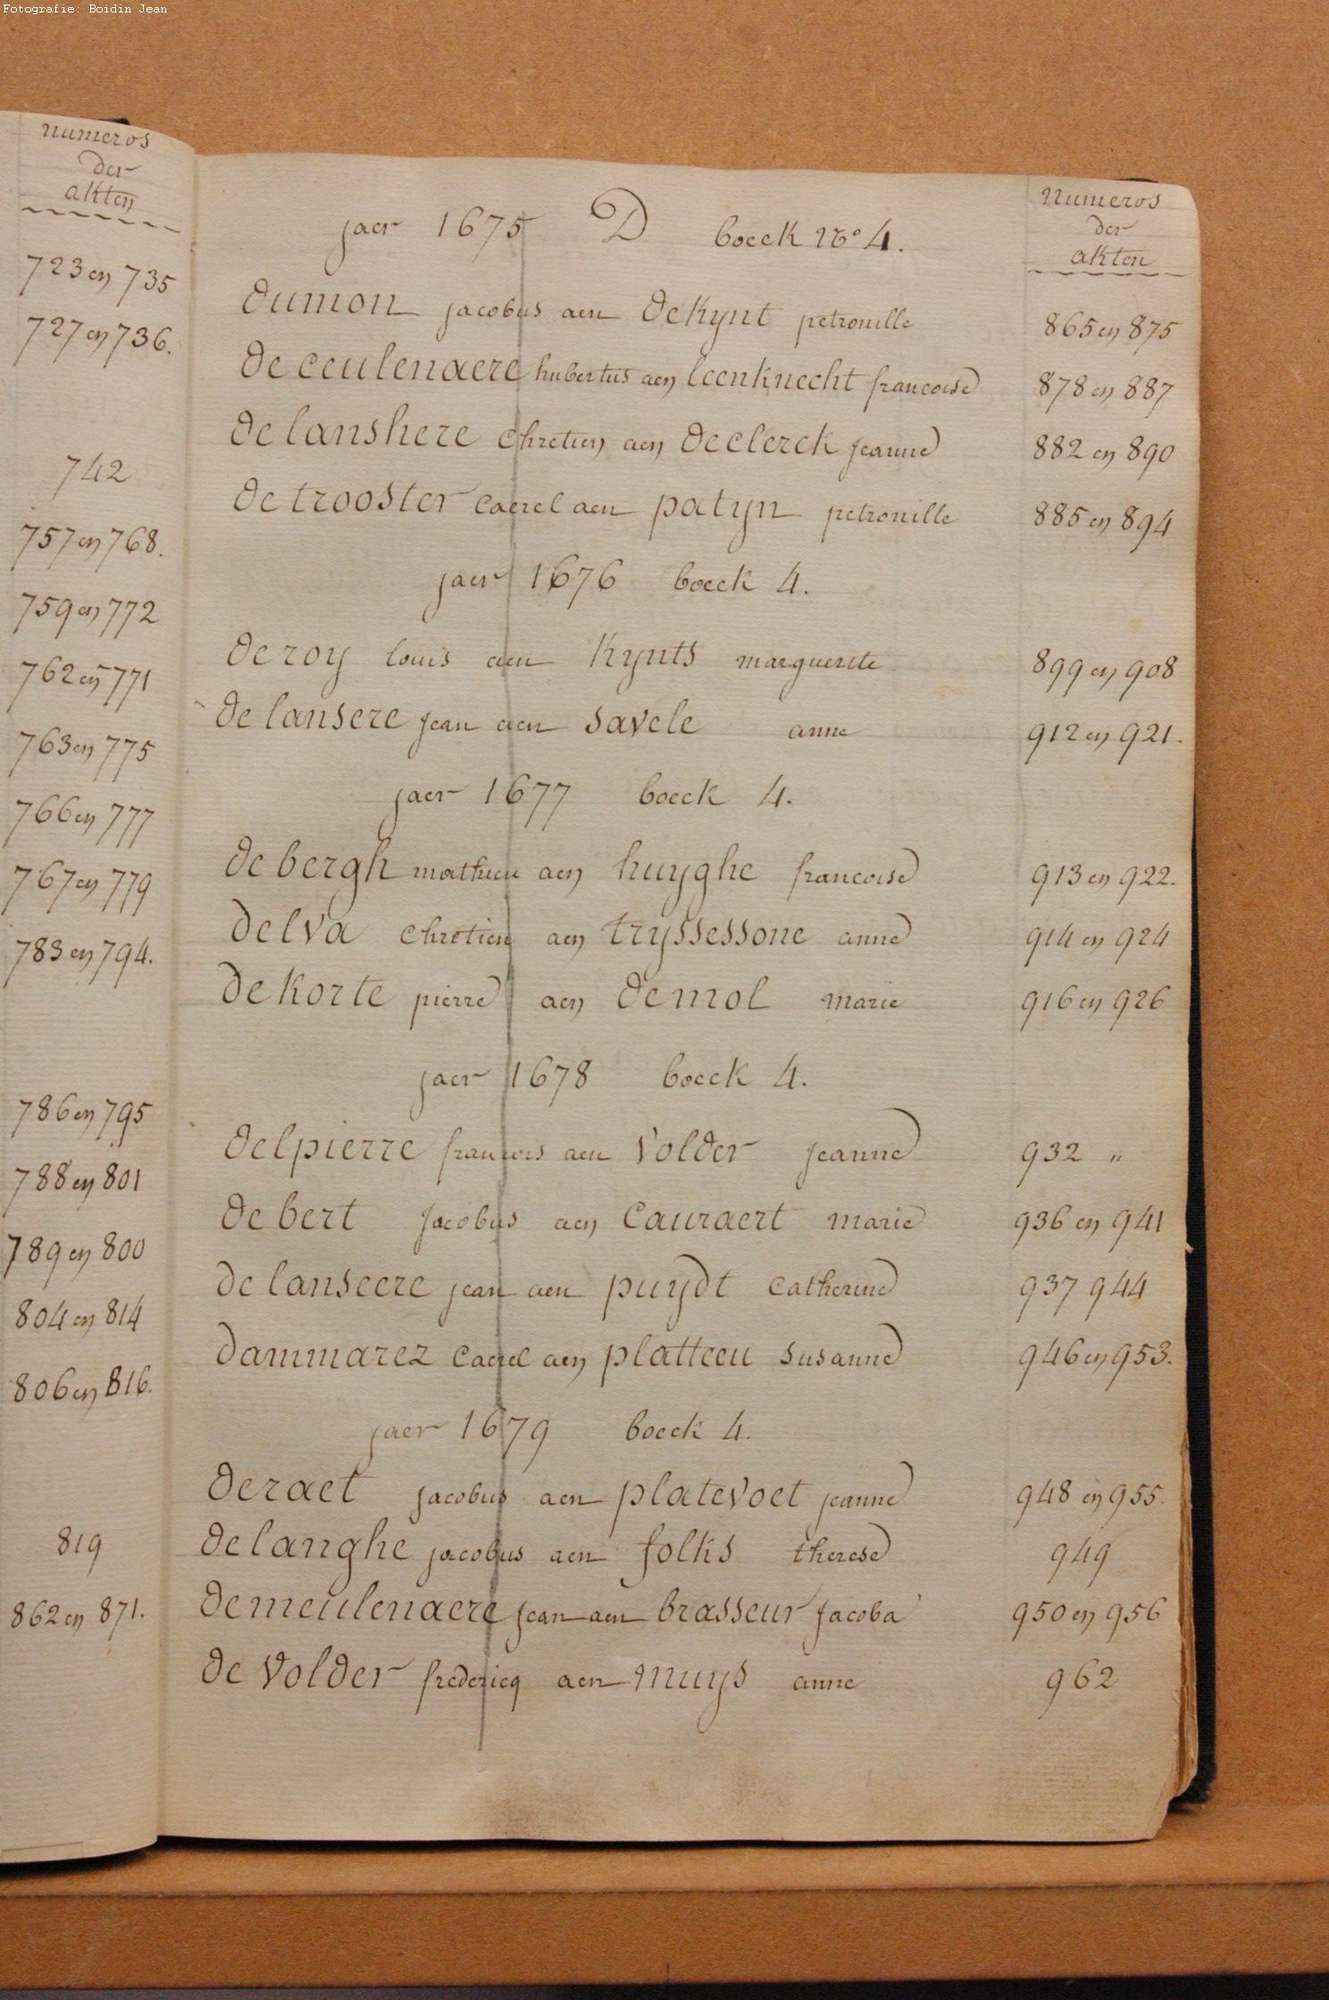 Fotografie: Boidin Jean
numeros
der
akten
723 en 735
727 en 736.
742
757 en 768.
759 en 772
762 en 771
763 en 775
766 en 777
767 en 779
783 en 794.
786 en 795
788 en 801
789 en 800
804 en 814
806 en 816.
819
862 en 871.
jaer 1675 D boeck N° 4. Numeros
der
akten
dumon jacobus aen dekynt petronille 865 en 875
de ceulenaere hubertus aen leenknecht francoise 878 en 887
de lanshere chretien aen declerck jeanne 882 en 890
de trooster caerel aen patyn petronille 885 en 894
jaer 1676 boeck 4.
de roy louis aen kynts marguerite 899 en 908
de lansere jean aen savele anne 912 en 921.
jaer 1677 boeck 4.
de bergh mathieu aen huyghe francoise 913 en 922.
delva chretien aen tryssessone anne 914 en 924
de korte pierre aen demol marie 916 en 926
jaer 1678 boeck 4.
delpierre francois aen volder jeanne 932 "
de bert jacobus aen cauraert marie 936 en 941
de lanseere jean aen puydt catherine 937 944
dammarez caerel aen platteeu susanne 946 en 953.
jaer 1679 boeck 4.
deraet jacobus aen platevoet jeanne 948 en 955.
delanghe jacobus aen folks therese 949
demeulenaere jean aen brasseur jacoba 950 en 956
de volder fredericq aen muys anne 962